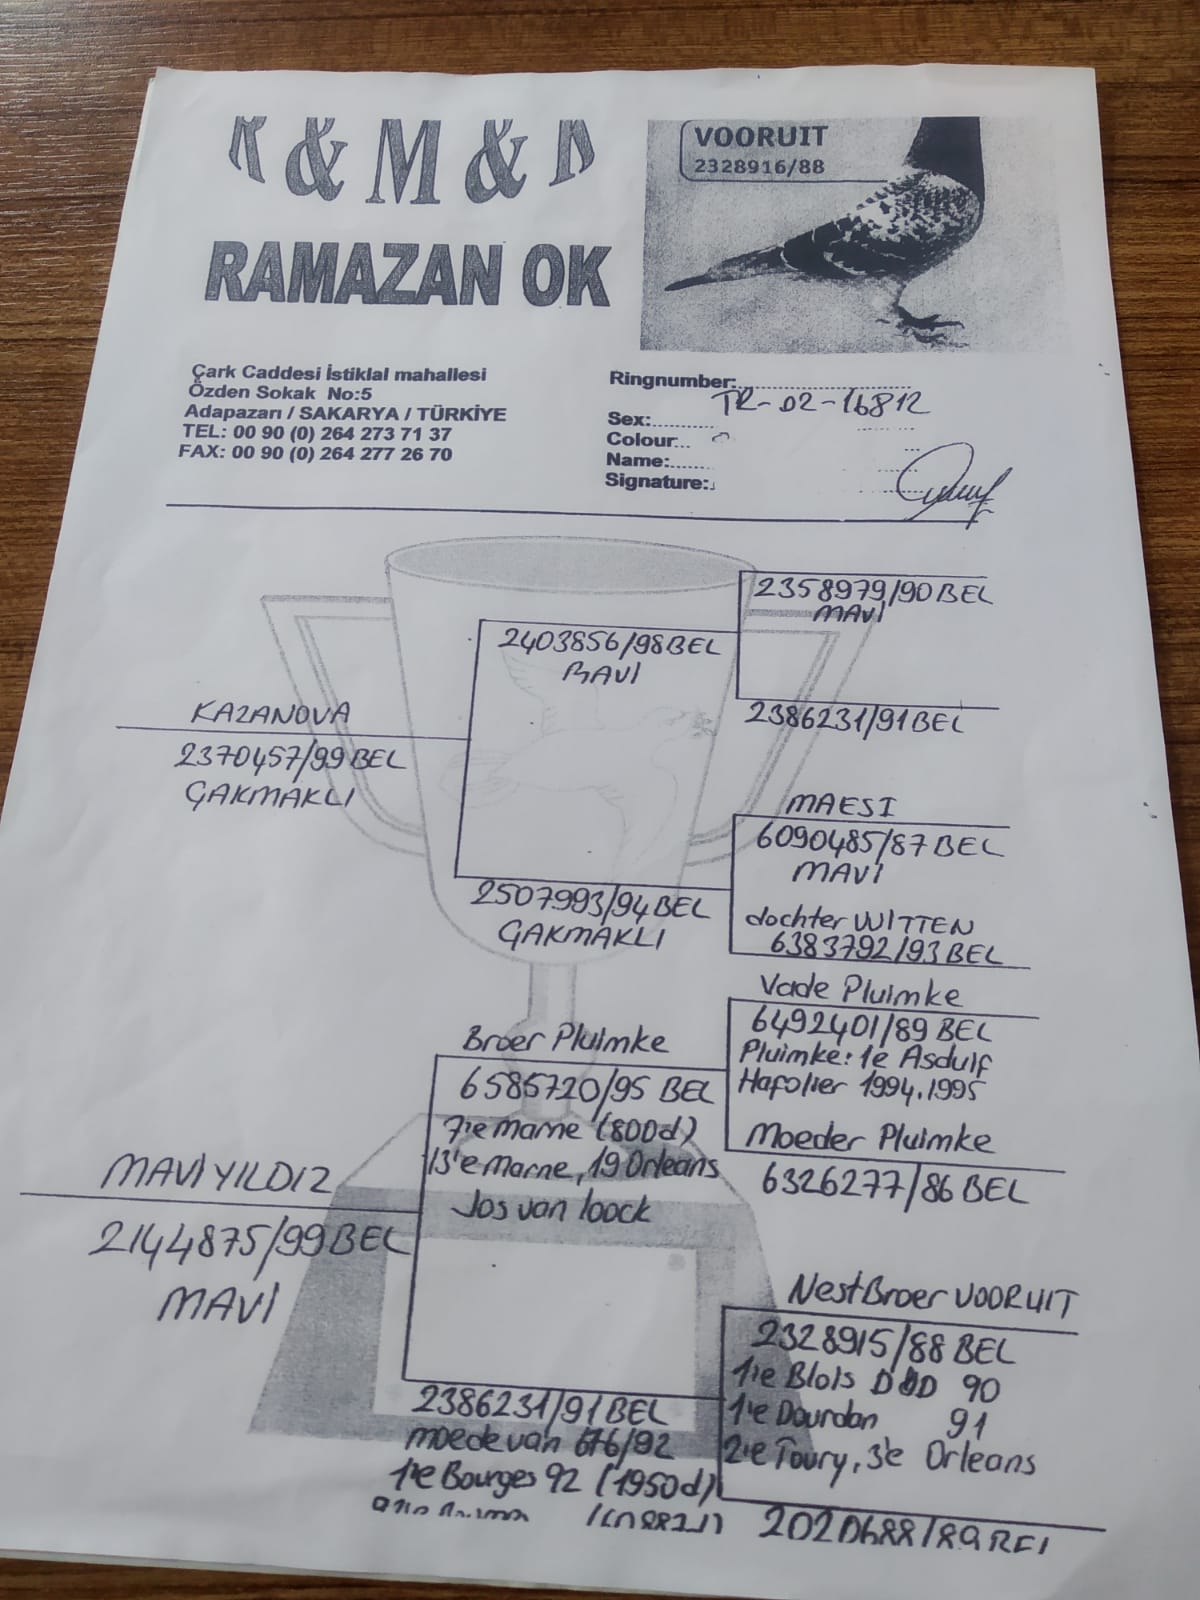 K & M & K
RAMAZAN OK
VOORUIT
2328916/88
Çark Caddesi İstiklal mahallesi
Özden Sokak No:5
Adapazarı / SAKARYA / TÜRKİYE
TEL: 00 90 (0) 264 273 71 37
FAX: 00 90 (0) 264 277 26 70
Ringnumber:
TR-02-16812
Sex:
Colour
Name:
Signature:
2358979/90 BEL
MAVİ
2403856/98 BEL
MAVİ
2386231/91 BEL
KAZANOVA
2370457/99 BEL
ÇAKMAKLI
MAESI
6090485/87 BEL
MAVİ
2507993/94 BEL
ÇAKMAKLI
dochter WITTEN
6383792/93 BEL
Vade Pluimke
6492401/89 BEL
Pluimke: 1e Asduif
Hafolier 1994.1995
Broer Pluimke
6585720/95 BEL
7'e Marne (800d)
13'e Marne, 19 Orleans
Jos van loock
Moeder Pluimke
6326277/86 BEL
MAVİ YILDIZ
2144875/99 BEL
MAVİ
NestBroer VOORUIT
2328915/88 BEL
1'ie Blois 90
1'e Dourdan 91
2'ie Toury, 3'e Orleans
2386231/91 BEL
moede van 676/92
1'e Bourges 92 (1950d)
2020688/89 BEL